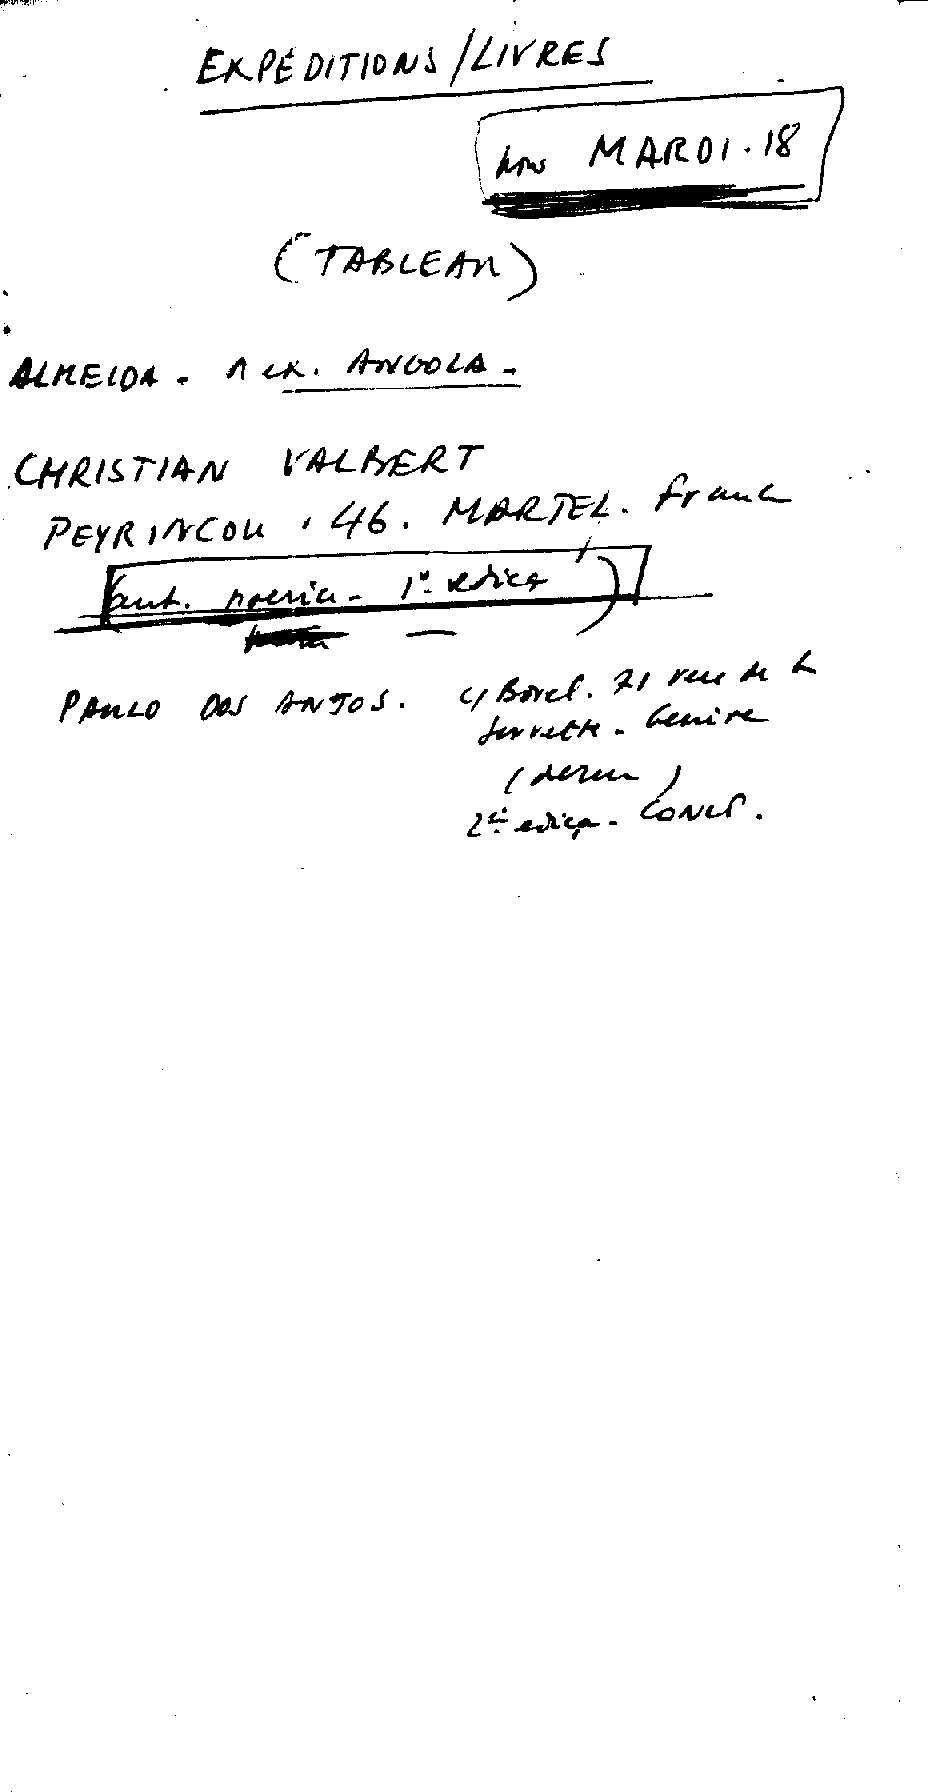 EXPÉDITIONS/LIVRES
MARDI.18
(TABLEAU)
ALMEIDA - 1 ex. ANGOLA -
CHRISTIAN VALBERT
PEYRINCOU . 46. MARTEL. France
(ant. poesia - 1ª ediçã)
PAULO DOS ANJOS. c/ Borel. 71 rue de la
Servette - Genève
2ª ediça -